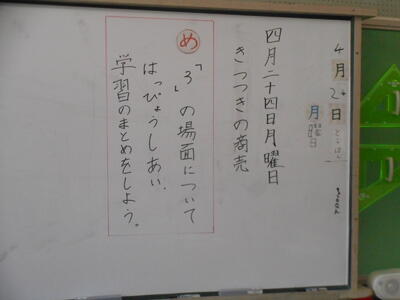 4月24日
月曜日
四月二十四日月曜日
きつつきの商売
め
「3」の場面について
はっぴょうしあい、
学習のまとめをしよう。